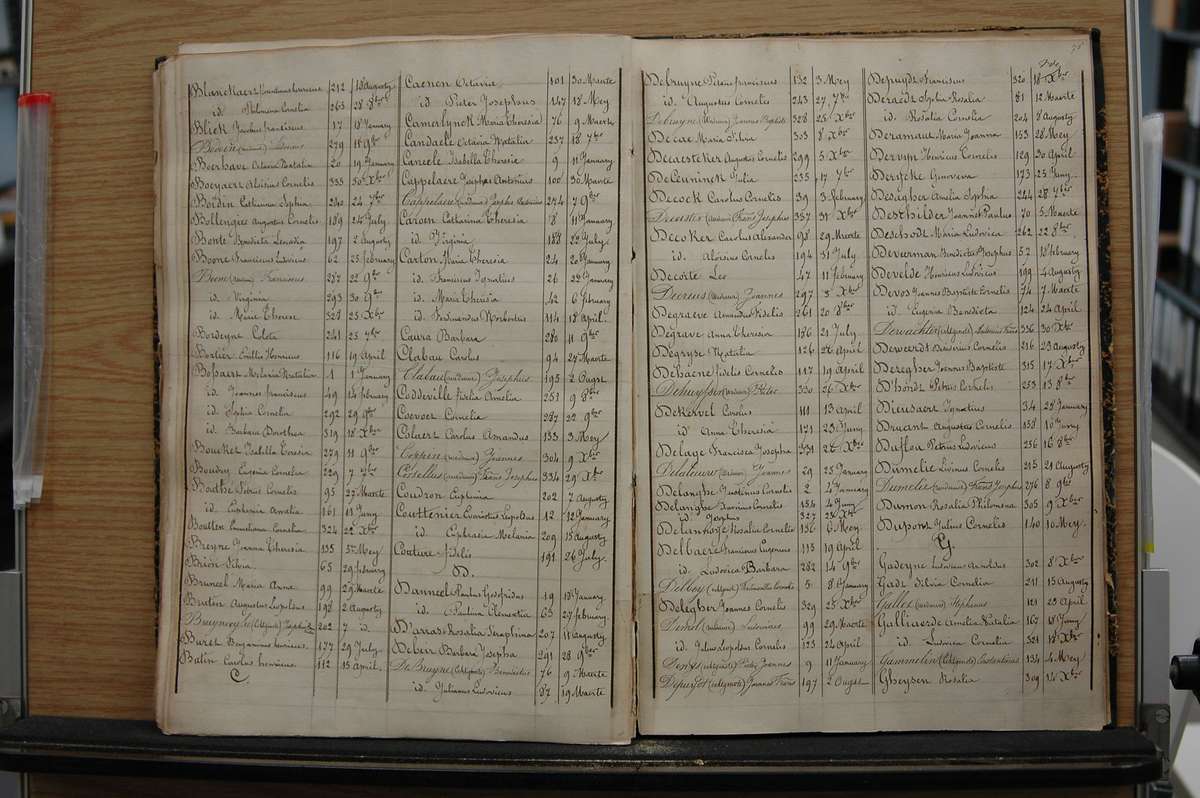 Blanckaert 212 18 Augusty
id. Philomena Cornelia 263 28 8ber
Blieck Jacobus Franciscus 17 18 January
279 11 9ber
Boerhave Octavia Natalia 20 19 January
Boeyaert Aloisius Cornelis 335 30 Xber
Boidin Catharina Sophia 240 24 7ber
Bollengier Augustus Cornelis 189 24 July
Bonte Benedicta Leonadia 197 2 Augusty
Boone Franciscus Ludovicus 62 25 february
Boone Franciscus 287 22 9ber
id. Virginia 293 30 9ber
id. Marie Therese 328 25 Xber
Bordeyne Coleta 241 25 7ber
Bortier Emilius Henricus 116 19 April
Bossaert Melania Natalia 1 1 January
id. Joannes Franciscus 49 14 february
id. Sophia Cornelia 292 29 9ber
id. Barbara Dorothea 319 18 Xber
Boucket Isabella Cornelia 279 11 9ber
Boudry Eugenia Cornelia 229 7 7ber
Bouthé Petrus Cornelis 95 27 Maerte
id. Euphemia Amelia 161 11 Juny
Boutten Emeliana Cornelia 324 22 Xber
Breyne Joanna Theresia 135 5 Mey
Brion Silvia 65 29 february
Bruneel Maria Anna 99 29 Maerte
Bruton Augustus Leopoldus 198 2 Augusty
202 7 id
Buret Benjaminus 177 29 July
Butin Carolus Henricus 112 15 April
C.
Caenen Octavia 101 30 Maerte
id. Pieter Josephus 147 18 Mey
Camerlynck Maria Theresia 76 9 Maerte
Candaele Octavia Natalia 237 18 7ber
Caneele Isabella Theresia 9 11 January
Cappelaere Josephus Antonius 100 30 Maerte
Cappelaere Josephus 274 7 9ber
Caroen Catharina Theresia 8 11 January
id. Virginia 188 22 July
Carton Maria Theresia 24 20 January
id. Franciscus Ignatius 26 22 January
id. Maria Theresia 42 6 february
id. Ferdinandus Norbertus 114 18 April
Caura Barbara 280 11 9ber
Clabau Carolus 94 27 Maerte
Clabau Josephus 195 2 Ougst
Coddeville Fidelia Amelia 253 9 8ber
Coevoet Cornelia 287 22 9ber
Colaert Carolus Amandus 133 3 Mey
Coppin Joannes 304 9 Xber
Coselles Frans Josephus 334 29 Xber
Coudron Euphemia 202 7 Augusty
Couttenier Evaristus Leopoldus 12 12 January
id. Euphrasia Melania 209 15 Augusty
Couture fidelis 191 26 July
D.
Danneel Paulus Godefridus 19 18 January
id. Paulina Clementia 63 27 february
D'arras Rosalia Seraphina 207 11 Augusty
Debeir Barbara Josepha 291 28 9ber
De Bruyne Benedictus 76 9 Maerte
id. Julianus Ludovicus 87 19 Maerte
Debruyne Petrus franciscus 132 3 Mey
id. Augustus Cornelis 243 27 7ber
Debruyne Joannes Baptiste 328 25 Xber
Decae Maria Silvia 303 8 Xber
Decaesteker Augustus Cornelis 299 5 Xber
Deceuninck Julia 235 17 7ber
Decock Carolus Cornelis 39 3 february
Frans Josephus 337 31 Xber
Decoker Carolus Alexander 98 29 Maerte
id. Aloisius Cornelis 194 31 July
Decoste Leo 47 11 february
Joannes 297 3 Xber
Degraeve Amandus Fidelis 261 20 8ber
Degrave Anna Theresia 186 21 July
Degryse Natalia 126 26 April
Dehaene Fidelis Cornelis 117 19 April
Pieter 330 26 Xber
Dekervel Carolus 111 13 April
id. Anna Theresia 121 23 Juny
Delage Francisca Josepha 331 26 Xber
Joannes 29 25 January
Delanghe Justinus Cornelis 2 4 January
Delanghe Xavrius Cornelis 154 4 Juny
id. Josephus 327 25 Xber
Delanhoye Rosalia Cornelis 136 6 Mey
Delbaere Franciscus Eugenius 115 19 April
id. Ludovica Barbara 282 14 9ber
5 8 January
Delegher Joannes Cornelis 329 25 Xber
Ludovicus 99 29 Maerte
id. Julius Leopoldus Cornelis 123 24 April
Joannes 9 11 January
Depuydt Joannes Frans 197 2 Ougst
Depuydt Franciscus 320 18 Xber
Deraedt Sophia Rosalia 81 12 Maerte
id. Rosalia Cornelia 204 8 Augusty
Deramout Maria Joanna 153 28 Mey
Deruyn Henricus Cornelis 129 30 April
Derycke Genoveva 173 25 Juny
Desagher Amelia Sophia 244 28 7ber
Deschilder Joannes Paulus 70 5 Maerte
Deschodt Maria Ludovica 262 22 8ber
Deveurman Benedictus Josephus 52 18 february
Develde Henricus Ludovicus 199 4 Augusty
Devos Joannes Baptiste Cornelis 74 7 Maerte
id. Eugenia Benedicta 124 24 April
Dewachter 336 30 Xber
Deweerdt Desiderius Cornelis 216 23 Augusty
Deregher Joannes Baptiste 315 17 Xber
D'hondt Petrus Cornelis 255 13 8ber
Dieusaert Ignatius 34 28 January
Druant Augustus Cornelis 158 10 Juny
Duflou Petrus Ludovicus 256 16 8ber
Dumelie Livinus Cornelis 215 21 Augusty
Dumelie Frans Joseph 276 8 9ber
Dumon Rosalia Philomena 305 9 Xber
Dupont Julius Cornelis 140 10 Mey
G.
Gaderyne Ludovicus Arnoldus 302 8 Xber
Gads Silvia Cornelia 211 15 Augusty
Gelles Stephanus 121 23 April
Galliaerde Amelia Natalia 167 18 Juny
id. Ludovica Cornelia 321 18 Xber
Gammelin Constantinus 134 4 Mey
Gheysen Rosalia 309 14 Xber